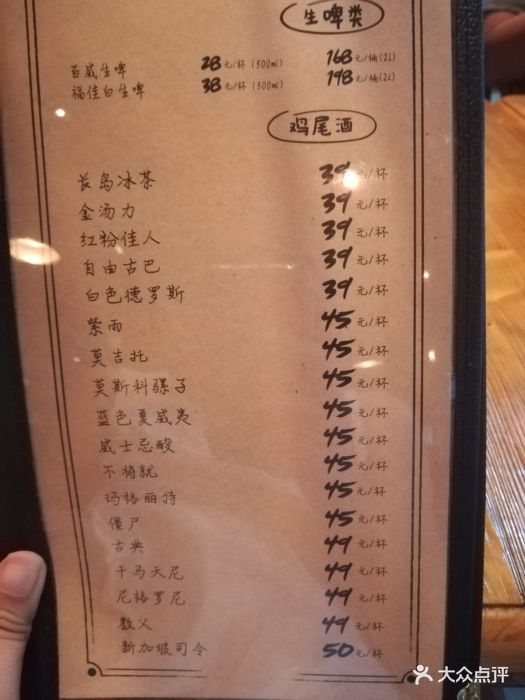 生啤类
百威生啤 28元/杯(500ml) 168元/桶(2L)
福佳白生啤 38元/杯(500ml) 198元/桶(2L)
鸡尾酒
长岛冰茶 39元/杯
金汤力 39元/杯
红粉佳人 39元/杯
自由古巴 39元/杯
白色德罗斯 39元/杯
紫雨 45元/杯
莫吉托 45元/杯
莫斯科骡子 45元/杯
蓝色夏威夷 45元/杯
威士忌酸 45元/杯
不将就 45元/杯
玛格丽特 45元/杯
僵尸 45元/杯
古典 49元/杯
干马天尼 49元/杯
尼格罗尼 49元/杯
教父 49元/杯
新加坡司令 50元/杯
大众点评